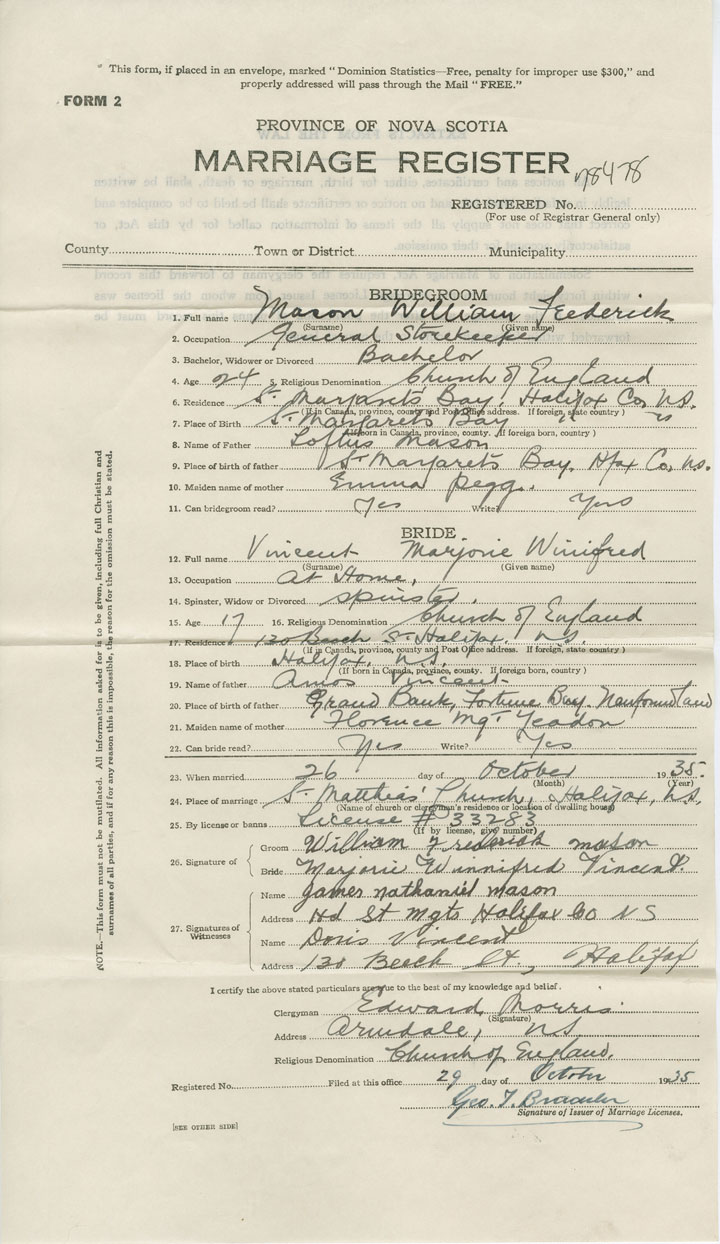 " This form, if placed in an envelope, marked " Dominion Statistics—Free, penalty for improper use $300," and
properly addressed will pass through the Mail " FREE."
FORM 2
PROVINCE OF NOVA SCOTIA
MARRIAGE REGISTER
78478
REGISTERED No.
(For use of Registrar General only)
County Town or District Municipality
BRIDEGROOM
1. Full name Mason William Frederick
(Surname) (Given name)
2. Occupation General Storekeeper
3. Bachelor, Widower or Divorced Bachelor
4. Age 24 5. Religious Denomination Church of England
6. Residence St. Margarets Bay, Halifax Co, N.S.
(If in Canada, province, county and Post Office address. If foreign, state country )
7. Place of Birth St. Margarets Bay " "
(If born in Canada, province, county. If foreign born, country )
8. Name of Father Loftus Mason
9. Place of birth of father St Margarets Bay, Hfax Co, N.S.
10. Maiden name of mother Emma Pegg.
11. Can bridegroom read? Yes Write? Yes
BRIDE
12. Full name Vincent Marjorie Winifred
(Surname) (Given name)
13. Occupation At Home,
14. Spinster, Widow or Divorced Spinster.
15. Age 17 16. Religious Denomination Church of England
17. Residence 130 Beech St Halifax. N.S.
(If in Canada, province, county and Post Office address. If foreign, state country )
18. Place of birth Halifax, N.S.
(If born in Canada, province, county. If foreign born, country )
19. Name of father Amos Vincent
20. Place of birth of father Grand Bank, Fortune Bay. Newfoundland
21. Maiden name of mother Florence Mgt Yeadon
22. Can bride read? Yes Write? Yes
23. When married 26 day of October 1935.
(Month) (Year)
24. Place of marriage St. Matthias' Church, Halifax, N.S.
(Name of church or clergyman's residence or location of dwelling house)
25. By license or banns License # 33283
(If by license, give number)
26. Signature of
Groom William Frederick mason
Bride Marjorie Winnifred Vincent.
27. Signatures of
Witnesses
Name James nathaniel mason
Address Hd St Mgts Halifax Co N S
Name Doris Vincent
Address 130 Beech St., Halifax
I certify the above stated particulars are true to the best of my knowledge and belief.
Clergyman Edward Morris.
(Signature)
Address Armdale, N.S
Religious Denomination Church of England.
Registered No. Filed at this office 29 day of October 1935
Geo. T.
Signature of Issuer of Marriage Licenses.
[SEE OTHER SIDE]
NOTE.—This form must not be mutilated. All information asked for is to be given, including full Christian and
surnames of all parties, and if for any reason this is impossible, the reason for the omission must be stated.